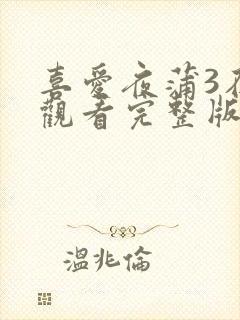 喜愛夜蒲3
觀看完整版
溫兆倫